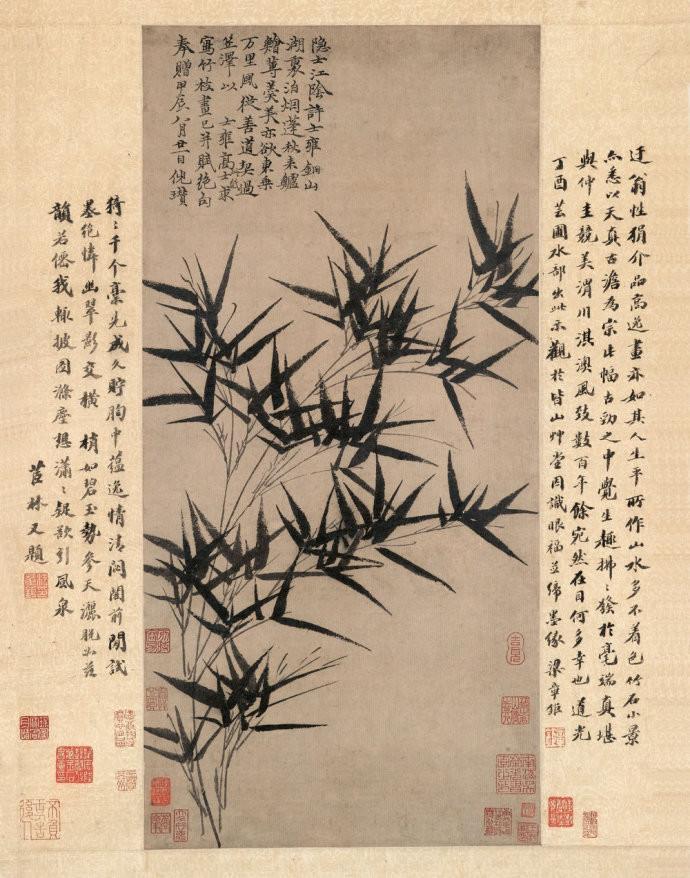 迂翁性狷介品高逸畫亦如其人生平所作山水多不着色竹石小景
亦悉以天真古澹為宗此幅古勁之中覺生趣拂〻發於毫端真堪
與仲圭競美渭川淇澳風致數百年餘宛然在目何多幸也道光
丁酉芸圃水部出此示觀於皆山艸堂因識眼福並締墨緣梁章鉅
隐士江陰許士雍銅山
湖裏泊烟蓬秋来鱸
鱠蓴羹美亦欲東乗
万里風從善道契過
笠澤以 士雍高士求
寫竹枝畫已并賦絕句
奉贈甲辰八月廿一日倪瓚
猗〻千个稾先成久貯胸中蘊逸情清閟閣前閒試
墨絕憐幽翠影交横 梢如碧玉勢參天灑脫如茲
韻若僊我輒披圖滌塵想瀟〻欲引風泉
茝林又題